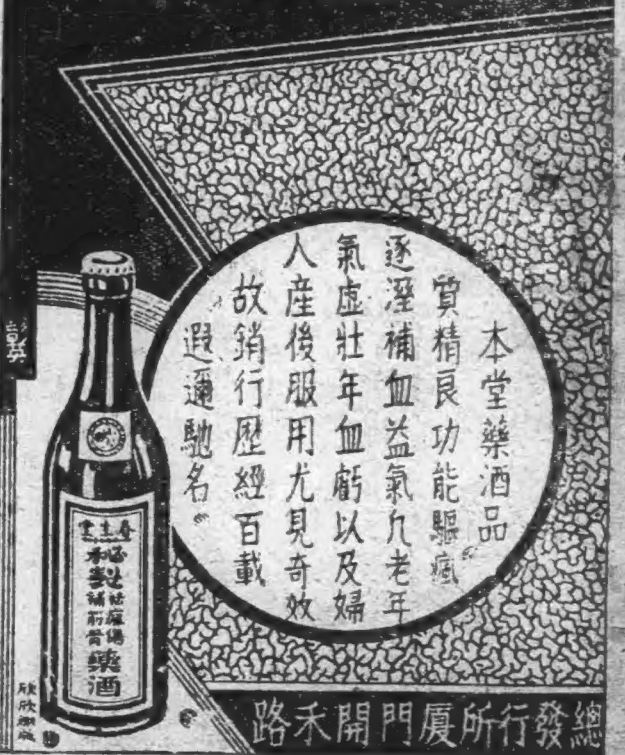 本堂藥酒品
質精良功能驅瘋
逐溼補血益氣凢老年
氣虛壯年血虧以及婦
人産後服用尤見奇效
故銷行歷經百載
遐邇馳名
春生堂
秘製
祛瘋傷
補筋骨
藥酒
總發行所廈門開禾路